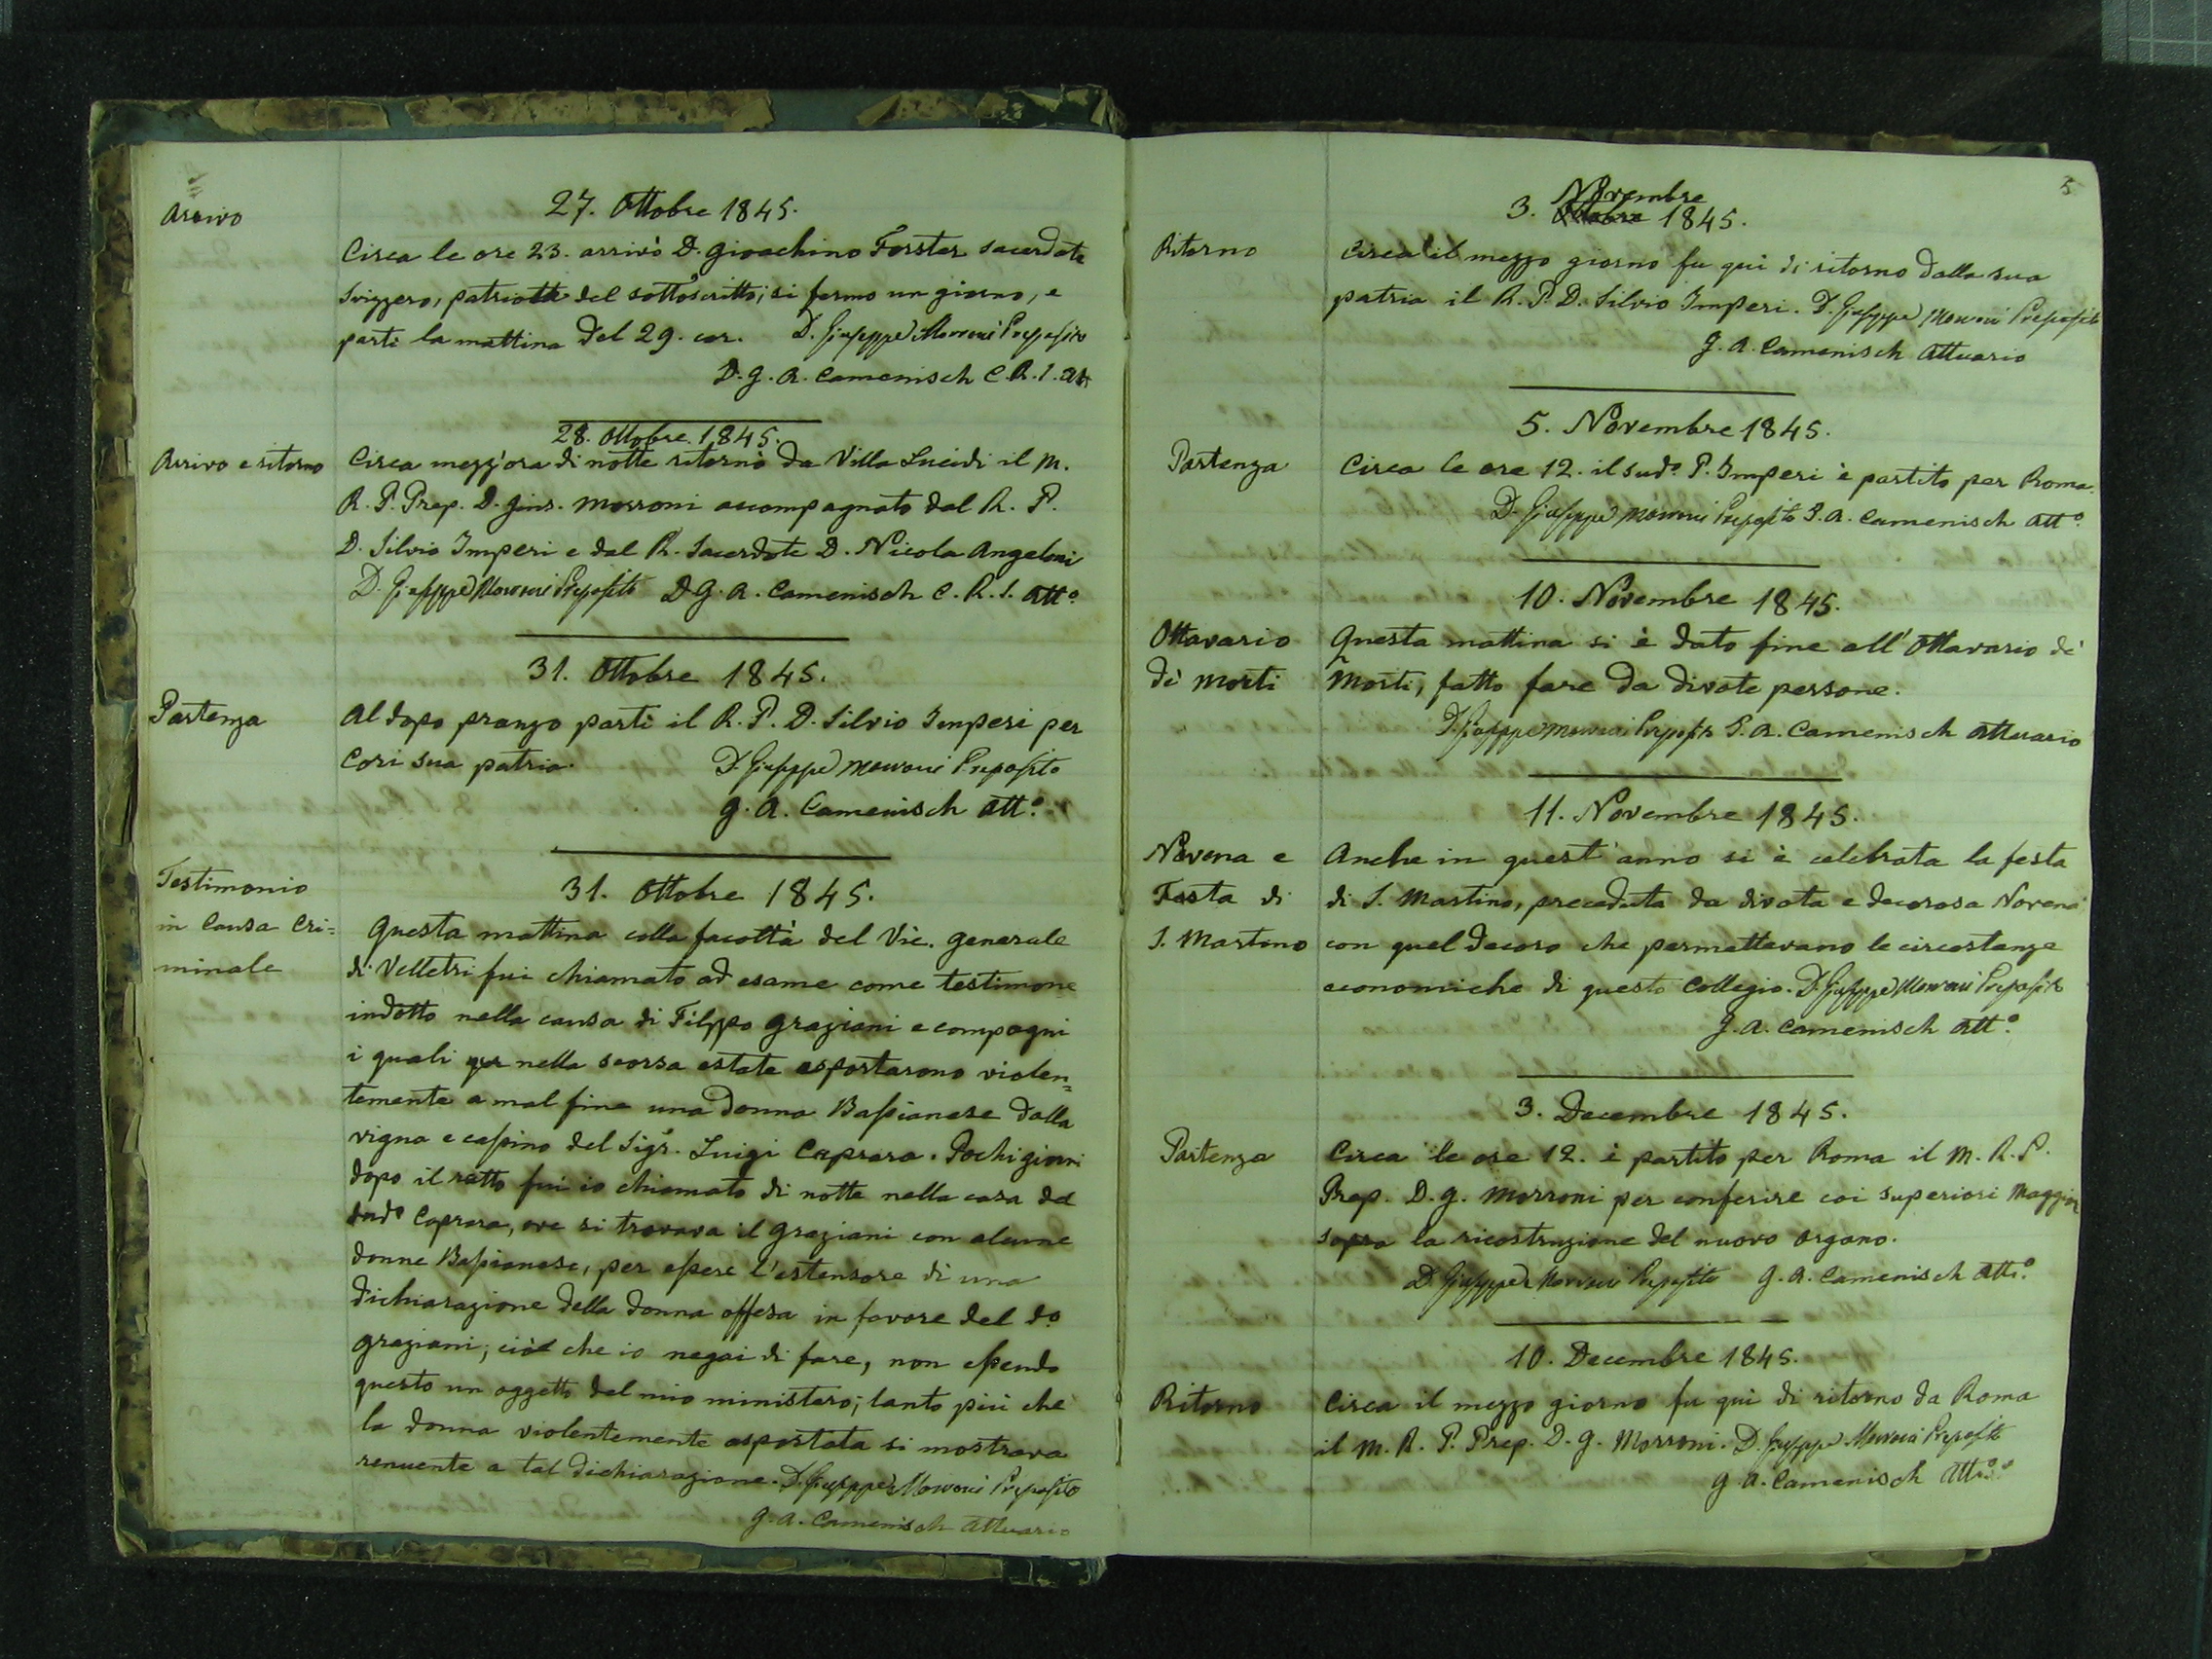 Arrivo
27. Ottobre 1845.
Circa le ore 23. arrivò D. Gioachino Forster sacerdote
Svizzero, patriotta del sottoscritto; si fermo un giorno, e
parti la mattina del 29. cor. D. Giuseppe Morroni Preposito
D. G. A. Camenisch C. R. S. Att
28. Ottobre. 1845.
Arrivo e ritorno
Circa mezz'ora di notte ritornò da Villa Lucidi il M.
R. P. Prep. D. Gius. Morroni accompagnato dal R. P.
D. Silvio Imperi e dal R. Sacerdote D. Nicola Angeloni
D. Giuseppe Morroni Preposito D G. A. Camenisch C. R. S. Att.º
31. Ottobre 1845.
Partenza
Al dopo pranzo parti il R. P. D. Silvio Imperi per
Cori sua patria. D. Giuseppe Morroni Preposito
G. A. Camenisch Att.º
Testimonio
in Causa Cri=
minale
31. Ottobre 1845.
Questa mattina colla facoltà del Vic. Generale
di Velletri fui chiamato ad esame come testimone
indotto nella causa di Filippo Graziani e compagni
i quali nella scorsa estate asportarono violen=
temente a mal fine una donna Bassianese dalla
vigna e cassino del Sigr. Luigi Caprara. Pochi giorni
dopo il ratto fui io chiamato di notte nella casa del
sudº Caprara, ove si trovava il Graziani con alcune
donne Bassianese, per essere l'estensore di una
dichiarazione della donna offesa in favore del dº
Graziani; ciò che io negai di fare, non essendo
questo un oggetto del mio ministero; tanto più che
la donna violentemente asportata si mostrava
renuente a tal dichiarazione. D. Giuseppe Morroni Preposito
G. A. Camenisch Attuario
5
Novembre
3. Ottobre 1845.
Ritorno
Circa il mezzo giorno fu qui di ritorno dalla sua
patria il R. P. D. Silvio Imperi. D. Giuseppe Morroni Preposito
G. A. Camenisch Attuario
5. Novembre 1845.
Partenza
Circa le ore 12. il sudº P. Imperi è partito per Roma.
D. Giuseppe Morroni Preposito G. A. Camenisch Att.º
10. Novembre 1845.
Ottavario
di Morti
Questa mattina si è dato fine all'Ottavario di
Morti, fatto fare da divote persone.
D. Giuseppe Morroni Preposito G. A. Camenisch Attuario
11. Novembre 1845.
Novena e
Festa di
S. Martino
Anche in quest'anno si è celebrata la festa
di S. Martino, preceduta da divota e decorosa Novena
con quel decoro che permettevano le circostanze
economiche di questo Collegio. D. Giuseppe Morroni Preposito
G. A. Camenisch Att.º
3. Decembre 1845.
Partenza
Circa le ore 12. è partito per Roma il M. R. P.
Prep. D. G. Morroni per conferire coi superiori Maggiori
sopra la ricostruzione del nuovo organo.
D. Giuseppe Morroni Preposito G. A. Camenisch Att.º
10. Decembre 1845.
Ritorno
Circa il mezzo giorno fu qui di ritorno da Roma
il M. R. P. Prep. D. G. Morroni. D. Giuseppe Morroni Preposito
G. A. Camenisch Att.º